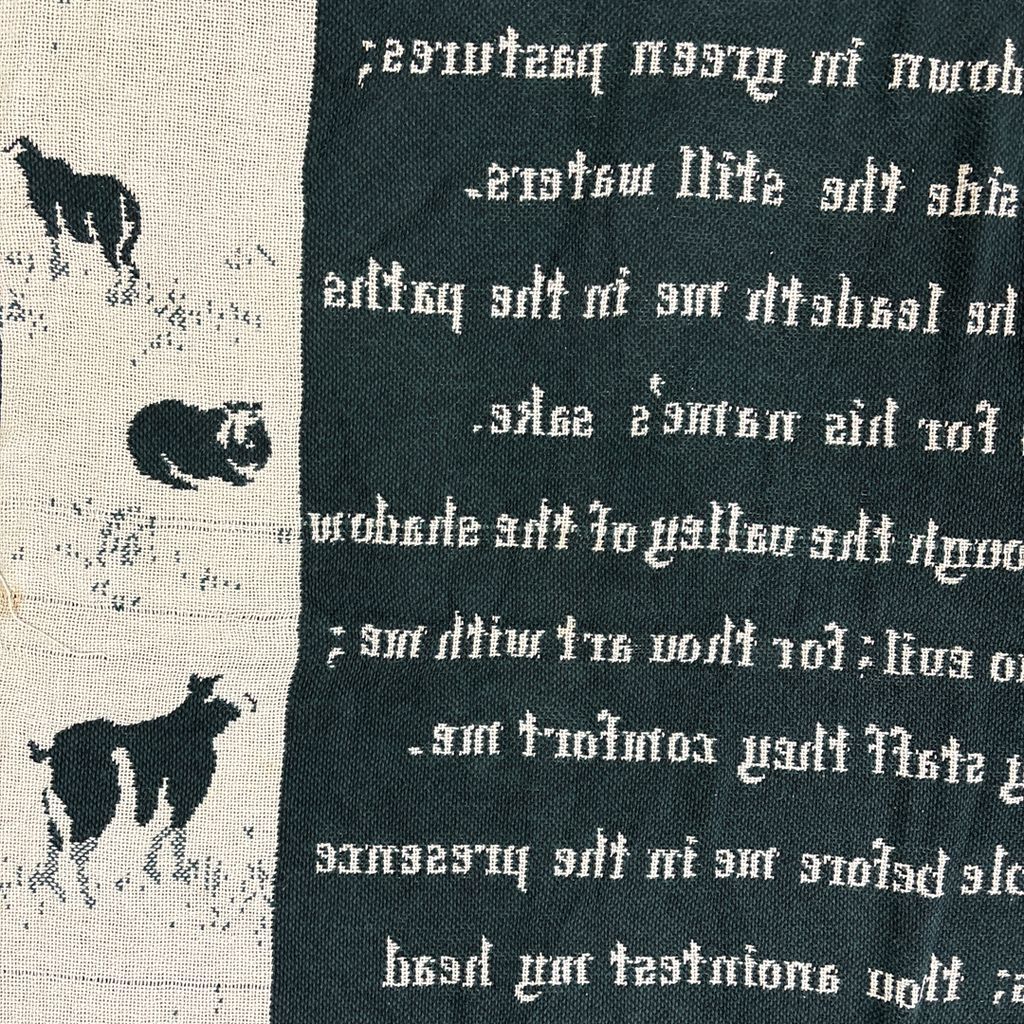 down in green pastures;
side the still waters.
he leadeth me in the paths
for his name's sake.
ough the valley of the shadow
o evil; for thou art with me;
y staff they comfort me.
ble before me in the presence
s; thou anointest my head